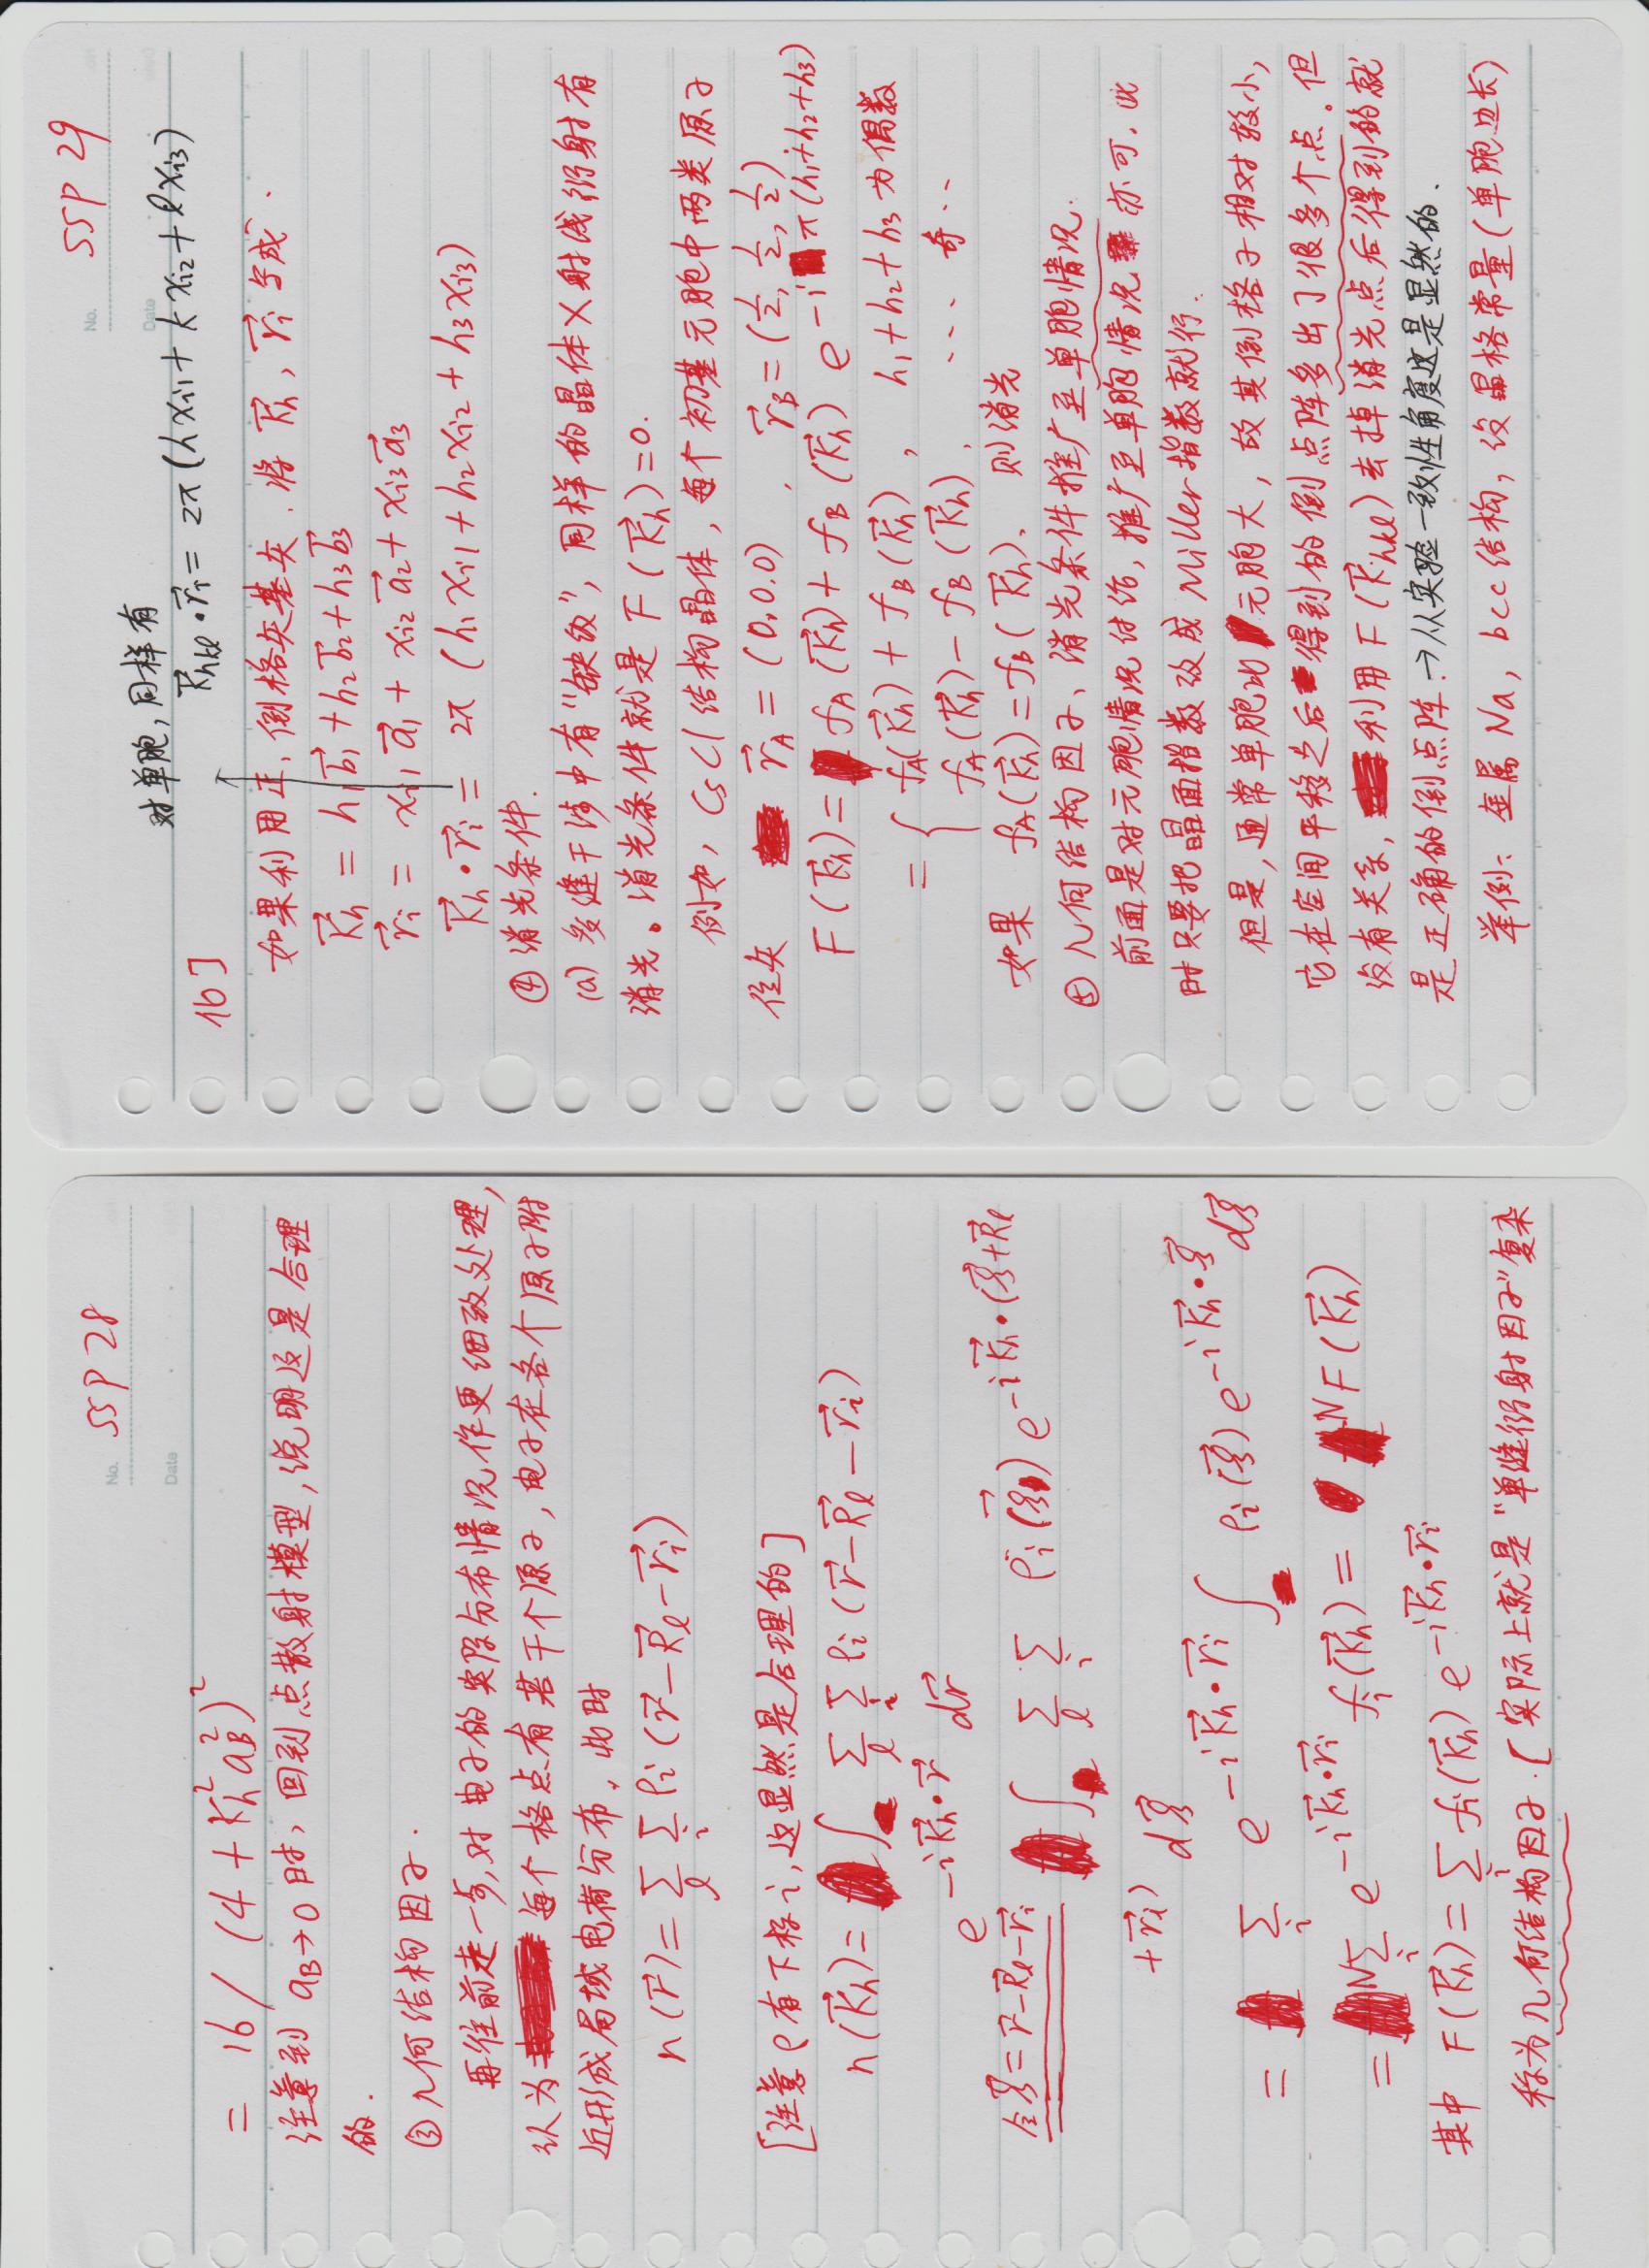 No. SSP 28
Date
= 16 / (4 + K_h^2 a_B^2)^2
注意到 a_B→0 时, 回到点散射模型, 说明这是合理
的.
③ 几何结构因子.
再往前走一步, 对电子的实际分布情况作更细致处理,
认为 每个格点有若干个原子, 电子在各个原子附
近形成局域电荷分布, 此时
n(\vec{r}) = \sum_l \sum_i ρ_i (\vec{r} - \vec{R}_l - \vec{r}_i)
[注意 ρ 有下标 i, 这显然是合理的]
n(\vec{K}_h) = ∫ \sum_l \sum_i ρ_i (\vec{r} - \vec{R}_l - \vec{r}_i)
e^{-i\vec{K}_h·\vec{r}} d\vec{r}
令\vec{ξ} = \vec{r} - \vec{R}_l - \vec{r}_i ∫ \sum_l \sum_i ρ_i(\vec{ξ}) e^{-i\vec{K}_h·(\vec{ξ}+\vec{R}_l
+\vec{r}_i)} d\vec{ξ}
= \sum_i e^{-i\vec{K}_h·\vec{r}_i} ∫ ρ_i(\vec{ξ}) e^{-i\vec{K}_h·\vec{ξ}} d\vec{ξ}
= N\sum_i e^{-i\vec{K}_h·\vec{r}_i} f_i(\vec{K}_h) = N F(\vec{K}_h)
其中 F(\vec{K}_h) = \sum_i f_i(\vec{K}_h) e^{-i\vec{K}_h·\vec{r}_i}
称为几何结构因子. [实际上就是"单缝衍射因子"复杂
No. SSP 29
Date
对单胞, 同样有
\vec{K}_{hkl}·\vec{r}_i = 2π(h x_{i1} + k x_{i2} + l x_{i3})
化]
如果利用正、倒格矢基矢, 将 \vec{K}_h, \vec{r}_i 写成.
\vec{K}_h = h_1\vec{b}_1 + h_2\vec{b}_2 + h_3\vec{b}_3
\vec{r}_i = x_{i1}\vec{a}_1 + x_{i2}\vec{a}_2 + x_{i3}\vec{a}_3
\vec{K}_h·\vec{r}_i = 2π (h_1 x_{i1} + h_2 x_{i2} + h_3 x_{i3})
④ 消光条件.
(a) 多缝干涉中有"缺级", 同样的晶体X射线衍射有
消光。消光条件就是 F(\vec{K}_h) = 0.
例如, CsCl结构晶体, 每个初基元胞中两类原子
位矢 \vec{r}_A = (0,0,0), \vec{r}_B = (1/2, 1/2, 1/2)
F(\vec{K}_h) = f_A(\vec{K}_h) + f_B(\vec{K}_h) e^{-iπ(h_1+h_2+h_3)}
= { f_A(\vec{K}_h) + f_B(\vec{K}_h), h_1+h_2+h_3 为偶数
f_A(\vec{K}_h) - f_B(\vec{K}_h), ... 奇..
如果 f_A(\vec{K}_h) = f_B(\vec{K}_h), 则消光
⑤ 几何结构因子、消光条件推广至单胞情况.
前面是对元胞情况讨论, 推广至单胞情况 亦可. 此
时只要把晶面指数改成Miller指数就行.
但是, 通常单胞比 元胞大, 故其倒格子相对较小,
它在空间平移之后 得到的倒点阵多出了很多个点。但
没有关系, 利用 F(\vec{K}_{hkl}) 去掉消光点后得到的就
是正确的倒点阵. →从实验一致性角度这是显然的.
举例: 金属Na, bcc结构, 设晶格常量(单胞边长)